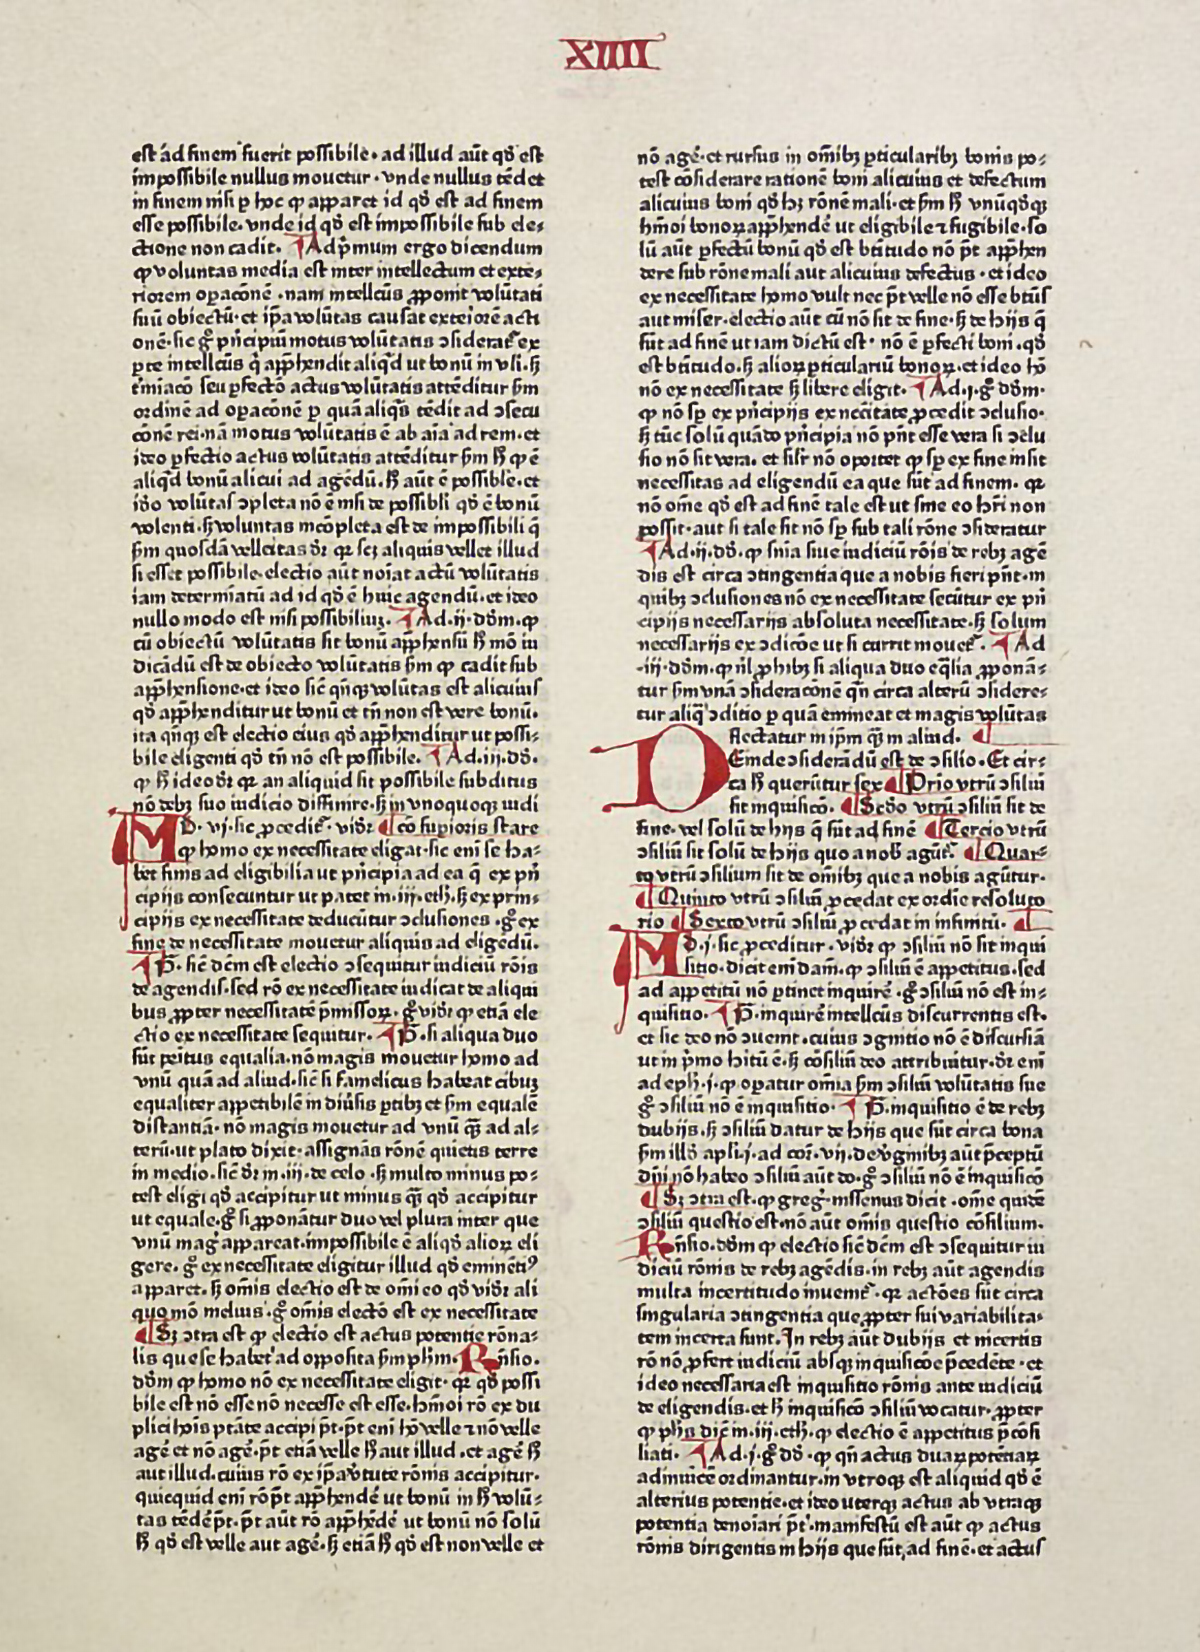 XIIII
est ad finem fuerit possibile. ad illud aūt qđ est
impossibile nullus mouetur. vnde nullus tēdet
in finem nisi ꝑ hoc ꝙ apparet id qđ est ad finem
esse possibile. vnde id qđ est impossibile sub ele-
ctione non cadit. ¶Ad p̄mum ergo dicendum
ꝙ voluntas media est inter intellectum et exte-
riorem oꝑacōnē. nam intellcūs ꝓponit volūtati
suū obiectū. et ip̄a volūtas causat exteiorē acti
onē. sic gͦ pͥncipiū motus volūtatis ↄsideratᷣ ex
ꝑte intellcūs q̇ app̄hendit aliqͥd ut bonū in vli. ꝫ
t̄miacō seu ꝑfectō actus volūtatis attēditur ẜm
ordinē ad oꝑacōnē ꝑ quā aliqͥs tēdit ad ↄsecu
cōnē rei. nā motus volūtatis ē ab aīa ad rem. et
ideo ꝑfectio actus volūtatis attēditur ẜm ħ ꝙ ē
aliqͥd bonū alicui ad agēdū. ħ aūt ē possibile. et
iđo volūtas ↄpleta nō ē nisi de possibili qđ ē bonū
volenti. ꝫ voluntas incōpleta est de impossibili q̄
ẜm quosdā velleitas dr̄. qꝛ scꝫ aliquis vellet illud
si esset possibile. electio aūt noīat actū volūtatis
iam determiatū ad id qđ ē huic agendū. et ideo
nullo modo est nisi possibiliuꝫ. ¶Ad .ij. dōm. ꝙ
cū obiectū volūtatis sit bonū app̄hensū ħ mō iu
dicādū est de obiecto volūtatis ẜm ꝙ cadit sub
app̄hensione. et ideo sic̄ qn̄qꝫ volūtas est alicuius
qđ app̄henditur ut bonū et tn̄ non est vere bonū.
ita qn̄qꝫ est electio eius qđ app̄henditur ut possi-
bile eligenti qđ tn̄ nō est possibile. ¶Ad .iij. dō.
ꝙ ħ ideo dr̄ qꝛ an aliquid sit possibile subditus
nō debꝫ suo iudicio diffinire. ꝫ in vnoquoqꝫ iudi
AD .vj. sic ꝓceditᷣ. videtᷣ ¶cō suꝑioris stare
ꝙ homo ex necessitate eligat. sic eni se ha-
bet finis ad eligibilia ut pͥncipia ad ea q̄ ex pͥn
cipijs consecuntur ut patet in .iij. eth. ꝫ ex prin-
cipijs ex necessitate deducūtur ↄclusiones. gͦ ex
fine de necessitate mouetur aliquis ad eligēdū.
¶P̄. sic̄ dc̄m est electio ↄsequitur iudiciū rōis
de agendis. sed rō ex necessitate iudicat de aliqui
bus ꝓpter necessitatē p̄missoꝝ. gͦ videtᷣ ꝙ etiā ele
ctio ex necessitate sequitur. ¶P̄. si aliqua duo
sūt penitus equalia. nō magis mouetur homo ad
vnū quā ad aliud. sic̄ si famelicus habeat cibuꝫ
equaliter appetibilē in diūsis ꝑtibꝫ et ẜm equalē
distantiā. nō magis mouetur ad vnū qꝫ ad al-
terū. ut plato dixit. assignās rōnē quietis terre
in medio. sic̄ dr̄ in .iij. de celo. ꝫ multo minus po-
test eligi qđ accipitur ut minus qꝫ qđ accipitur
ut equale. gͦ si ꝓponātur duo vel plura inter que
vnū magͥ appareat. impossibile ē aliqđ alioꝝ eli
gere. gͦ ex necessitate eligitur illud qđ eminētiꝰ
apparet. ꝫ omīs electio est de omī eo qđ videtᷣ ali
quo mō melius. gͦ omīs electō est ex necessitate
¶Sꝫ ↄtra est ꝙ electio est actus potentie rōna-
lis que se habetᷣ ad opposita ẜm pħm. Rn̄sio.
dōm ꝙ homo nō ex necessitate eligit. qꝛ qđ possi
bile est nō esse nō necesse est esse. hm̄oi rō ex du
plici hoīs p̄tāte accipi pt̄. pt̄ eni hō velle ⁊ nō velle
agē et nō agē. pt̄ etiā velle ħ aut illud. et agē ħ
aut illud. cuius rō ex ip̄a v̄tute rōnis accipitur.
quicquid eni rō pt̄ app̄hendē ut bonū in ħ volū-
tas tēdē pt̄. pt̄ aūt rō app̄hēdē ut bonū nō solū
ħ qđ est velle aut agē. ꝫ etiā ħ qđ est non velle et
nō agē. et rursus in om̄ibꝫ ꝑticularibꝫ bonis po-
test cōsiderare rationē boni alicuius et defectum
alicuius boni qđ hꝫ rōnē mali. et ẜm ħ vnūqđqꝫ
hm̄oi bonoꝝ app̄hendē ut eligibile ⁊ fugibile. so
lū aūt ꝑfectū bonū qđ est btītudo nō pt̄ app̄hen
dere sub rōne mali aut alicuius defectus. et ideo
ex necessitate homo vult nec pt̄ velle nō esse btūs
aut miser. electio aūt cū nō sit de fine. ꝫ de hijs q̄
sūt ad finē ut iam dictū est. nō ē ꝑfecti boni. qđ
est btītudo. ꝫ alioꝝ ꝑticulariū bonoꝝ. et ideo hō
nō ex necessitate ꝫ libere eligit. ¶Ad .j. gͦ dōm.
ꝙ nō sꝑ ex pͥncipijs ex nec̄itate ꝓcedit ↄclusio.
ꝫ tūc solū quādo pͥncipia nō pn̄t esse vera si ↄclu
sio nō sit vera. et silr̄ nō oportet ꝙ sꝑ ex fine insit
necessitas ad eligendū ea que sūt ad finem. qꝛ
nō om̄e qđ ē ad finē tale est ut sine eo hr̄i non
possit. aut si tale sit nō sꝑ sub tali rōne ↄsideratur
¶Ad .ij. dō. ꝙ sn̄ia siue iudiciū rōis de rebꝫ agē
dis est circa ↄtingentia que a nobis fieri pn̄t. in
quibꝫ ↄclusiones nō ex necessitate secūtur ex pͥn
cipijs necessarijs absoluta necessitate. ꝫ solum
necessarijs ex ↄdicōe ut si currit mouetᷣ. ¶Ad
.iij. dōm. ꝙ nl̄ ꝓhibꝫ si aliqua duo eq̄lia ꝓponā-
tur ẜm vnā ↄsideracōnē qn̄ circa alterū ↄsidere-
tur aliq̄ ↄditio ꝑ quā emineat et magis volūtas
flectatur in ip̄m qꝫ in aliud. ¶
DEinde ↄsiderādū est de ↄsilio. Et cir-
ca ħ querūtur sex ¶Prio vtrū ↄsiliū
sit inquisicō. ¶Scđo vtrū ↄsiliū sit de
fine. vel solū de hijs q̄ sūt ad finē ¶Tercio vtrū
ↄsiliū sit solū de hijs quo a nob̄ agūtᷣ. ¶Quar-
to vtrū ↄsilium sit de om̄ibꝫ que a nobis agūtur.
¶Quinto vtrū ↄsiliū ꝓcedat ex ordīe resoluto
rio ¶Sexto vtrū ↄsiliū ꝓcedat in infinitū. ¶
AD .j. sic ꝓceditur. videtᷣ ꝙ ↄsiliū nō sit inqui
sitio. dicit eni dam̄. ꝙ ↄsiliū ē appetitus. sed
ad appetitū nō ꝑtinet inquirē. gͦ ↄsiliū nō est in-
quisitio. ¶P̄. inquirē intellcūs discurrentis est.
et sic deo nō ↄuenit. cuius ↄgnitio nō ē discursiā
ut in pͥmo hitū ē. ꝫ cōsiliū deo attribuitur. dr̄ eni
ad eph. j. ꝙ oꝑatur om̄ia ẜm ↄsiliū volūtatis sue
gͦ ↄsiliū nō ē inquisitio. ¶P̄. inquisitio ē de rebꝫ
dubijs. ꝫ ↄsiliū datur de hijs que sūt circa bona
ẜm illđ apl̄i .j. ad cor. vij. de v̄gīnibꝫ aūt p̄ceptū
dn̄i nō habeo ↄsiliū aūt do. gͦ ↄsiliū nō ē inquisicō
¶Sꝫ ↄtra est. ꝙ gregͥ. nissenus dicit. om̄e quidē
ↄsiliū questio est. nō aūt om̄is questio cōsilium.
Rn̄sio. dōm ꝙ electio sic̄ dc̄m est ↄsequitur iu
diciū rōnis de rebꝫ agēdis. in rebꝫ aūt agendis
multa incertitudo inuenitᷣ. qꝛ actōes sūt circa
singularia ↄtingentia que ꝓpter sui variabilita-
tem incerta sunt. In rebꝫ aūt dubijs et incertis
rō nō ꝓfert iudiciū absqꝫ inquisicōe p̄cedēte. et
ideo necessaria est inquisitio rōnis ante iudiciū
de eligendis. et ħ inquisicō ↄsiliū vocatur. ꝓpter
ꝙ pħs dic̄ in .iij. eth. ꝙ electio ē appetitus p̄cōsi
liati. ¶Ad .j. gͦ dō. ꝙ qn̄ actus duaꝝ potētiaꝝ
adinuicē ordinantur. in vtroqꝫ est aliquid qđ ē
alterius potentie. et ideo uterqꝫ actus ab vtraqꝫ
potentia denoīari pt̄. manifestū est aūt ꝙ actus
rōnis dirigentis in hijs que sūt ad finē. et actus